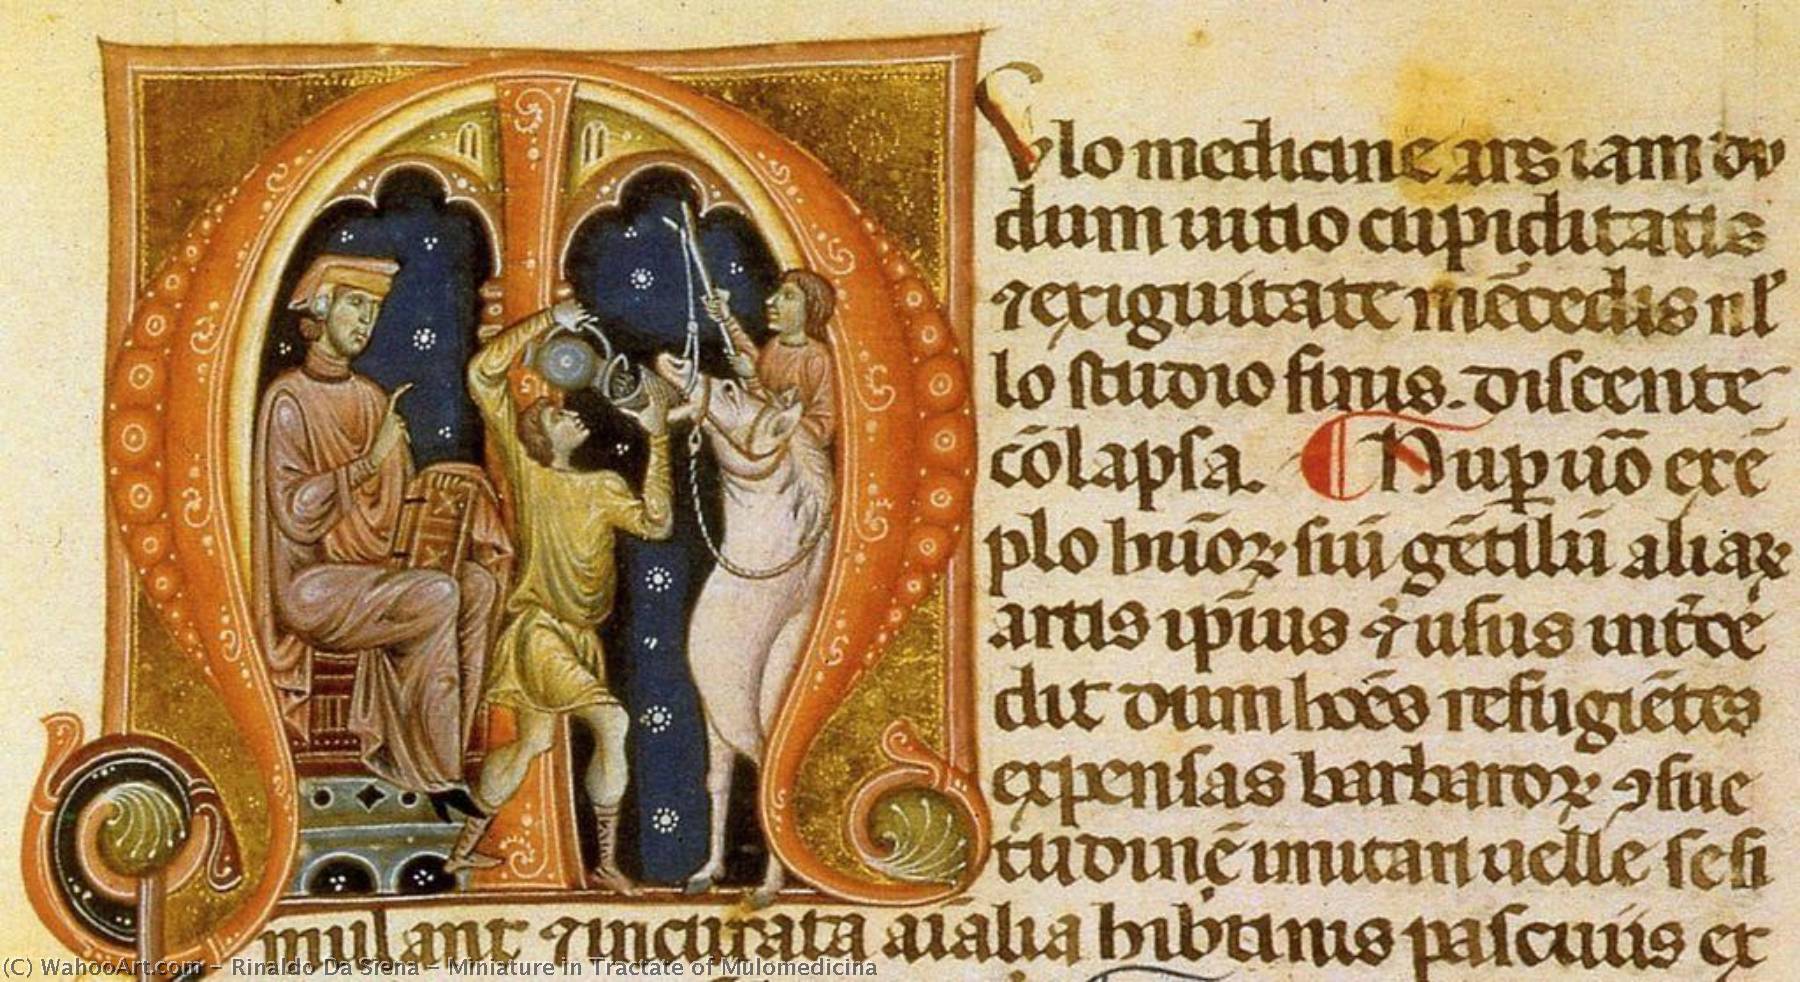 ulo medicine ars iam du
dum uitio cupiditatis
⁊ exiguitate mēcedis nl̄
lo studio finis. discente
cōlapsa. Nup̱ uō exē
plo hūoꝝ siū gētiliū aliaꝝ
artis ip̄ius ⁊ usus int̄ce
dit dum hoēs refugiētes
expensas barbaroꝝ ꝯsue
tudinē imitari uelle se si
mulant ⁊ incurata aīalia hibernis pascuis ex
(C) WahooArt.com - Rinaldo Da Siena - Miniature in Tractate of Mulomedicina